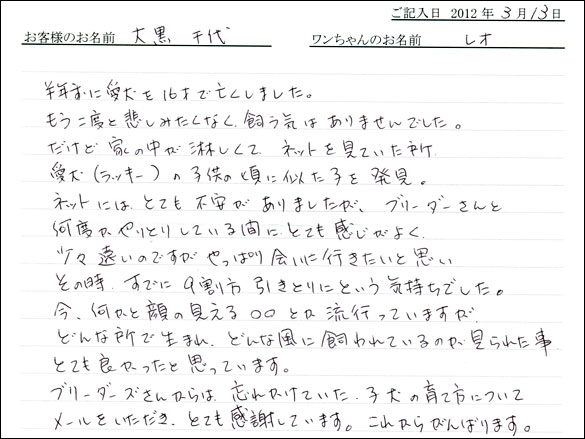 ご記入日 2012年3月13日
お客様のお名前 大黒 千代 ワンちゃんのお名前 レオ
半年前に愛犬を16才で亡くしました。
もう二度と悲しみたくなく、飼う気はありませんでした。
だけど 家の中が淋しくて ネットを見ていた所
愛犬(ラッキー)の子供の頃に似た子を発見。
ネットには、とても不安がありましたが、ブリーダーさんと
何度かやりとりしている間に、とても感じがよく、
少々遠いのですが やっぱり会いに行きたいと思い
その時、すでに9割方 引きとりにという気持ちでした。
今、何かと顔の見える〇〇とか 流行っていますが、
どんな所で生まれ、どんな風に飼われているのか見られた事
とても良かったと思っています。
ブリーダーズさんからは、忘れかけていた、子犬の育て方について
メールをいただき、とても感謝しています。これからがんばります。